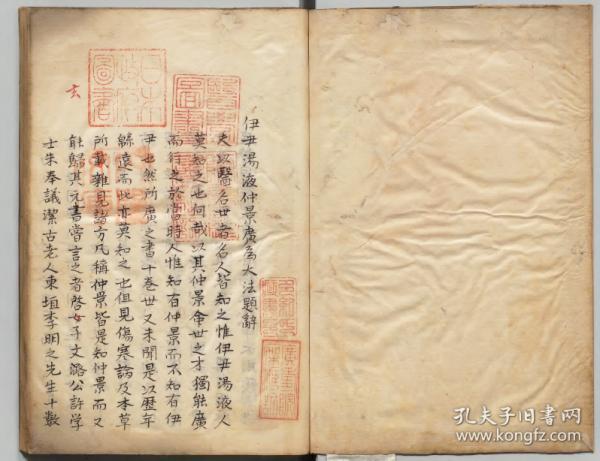 伊尹湯液仲景廣為大法題辭
夫以醫名世者名人皆知之惟伊尹湯液人
莫知之也何哉以其仲景命世之才獨能廣
而行之於當時人惟知有仲景而不知有伊
尹也然所廣之書十卷世又未聞是以歷年
緜遠而此亦莫知之也但見傷寒論及本草
所載雜見諸方凡稱仲景皆是知仲景而又
能歸其元書嘗言之者啓玄子文潞公許學
士朱奉議潔古老人東垣李明之先生十數
玄
日本
政府
圖書
孔夫子旧书网
www.kongfz.com